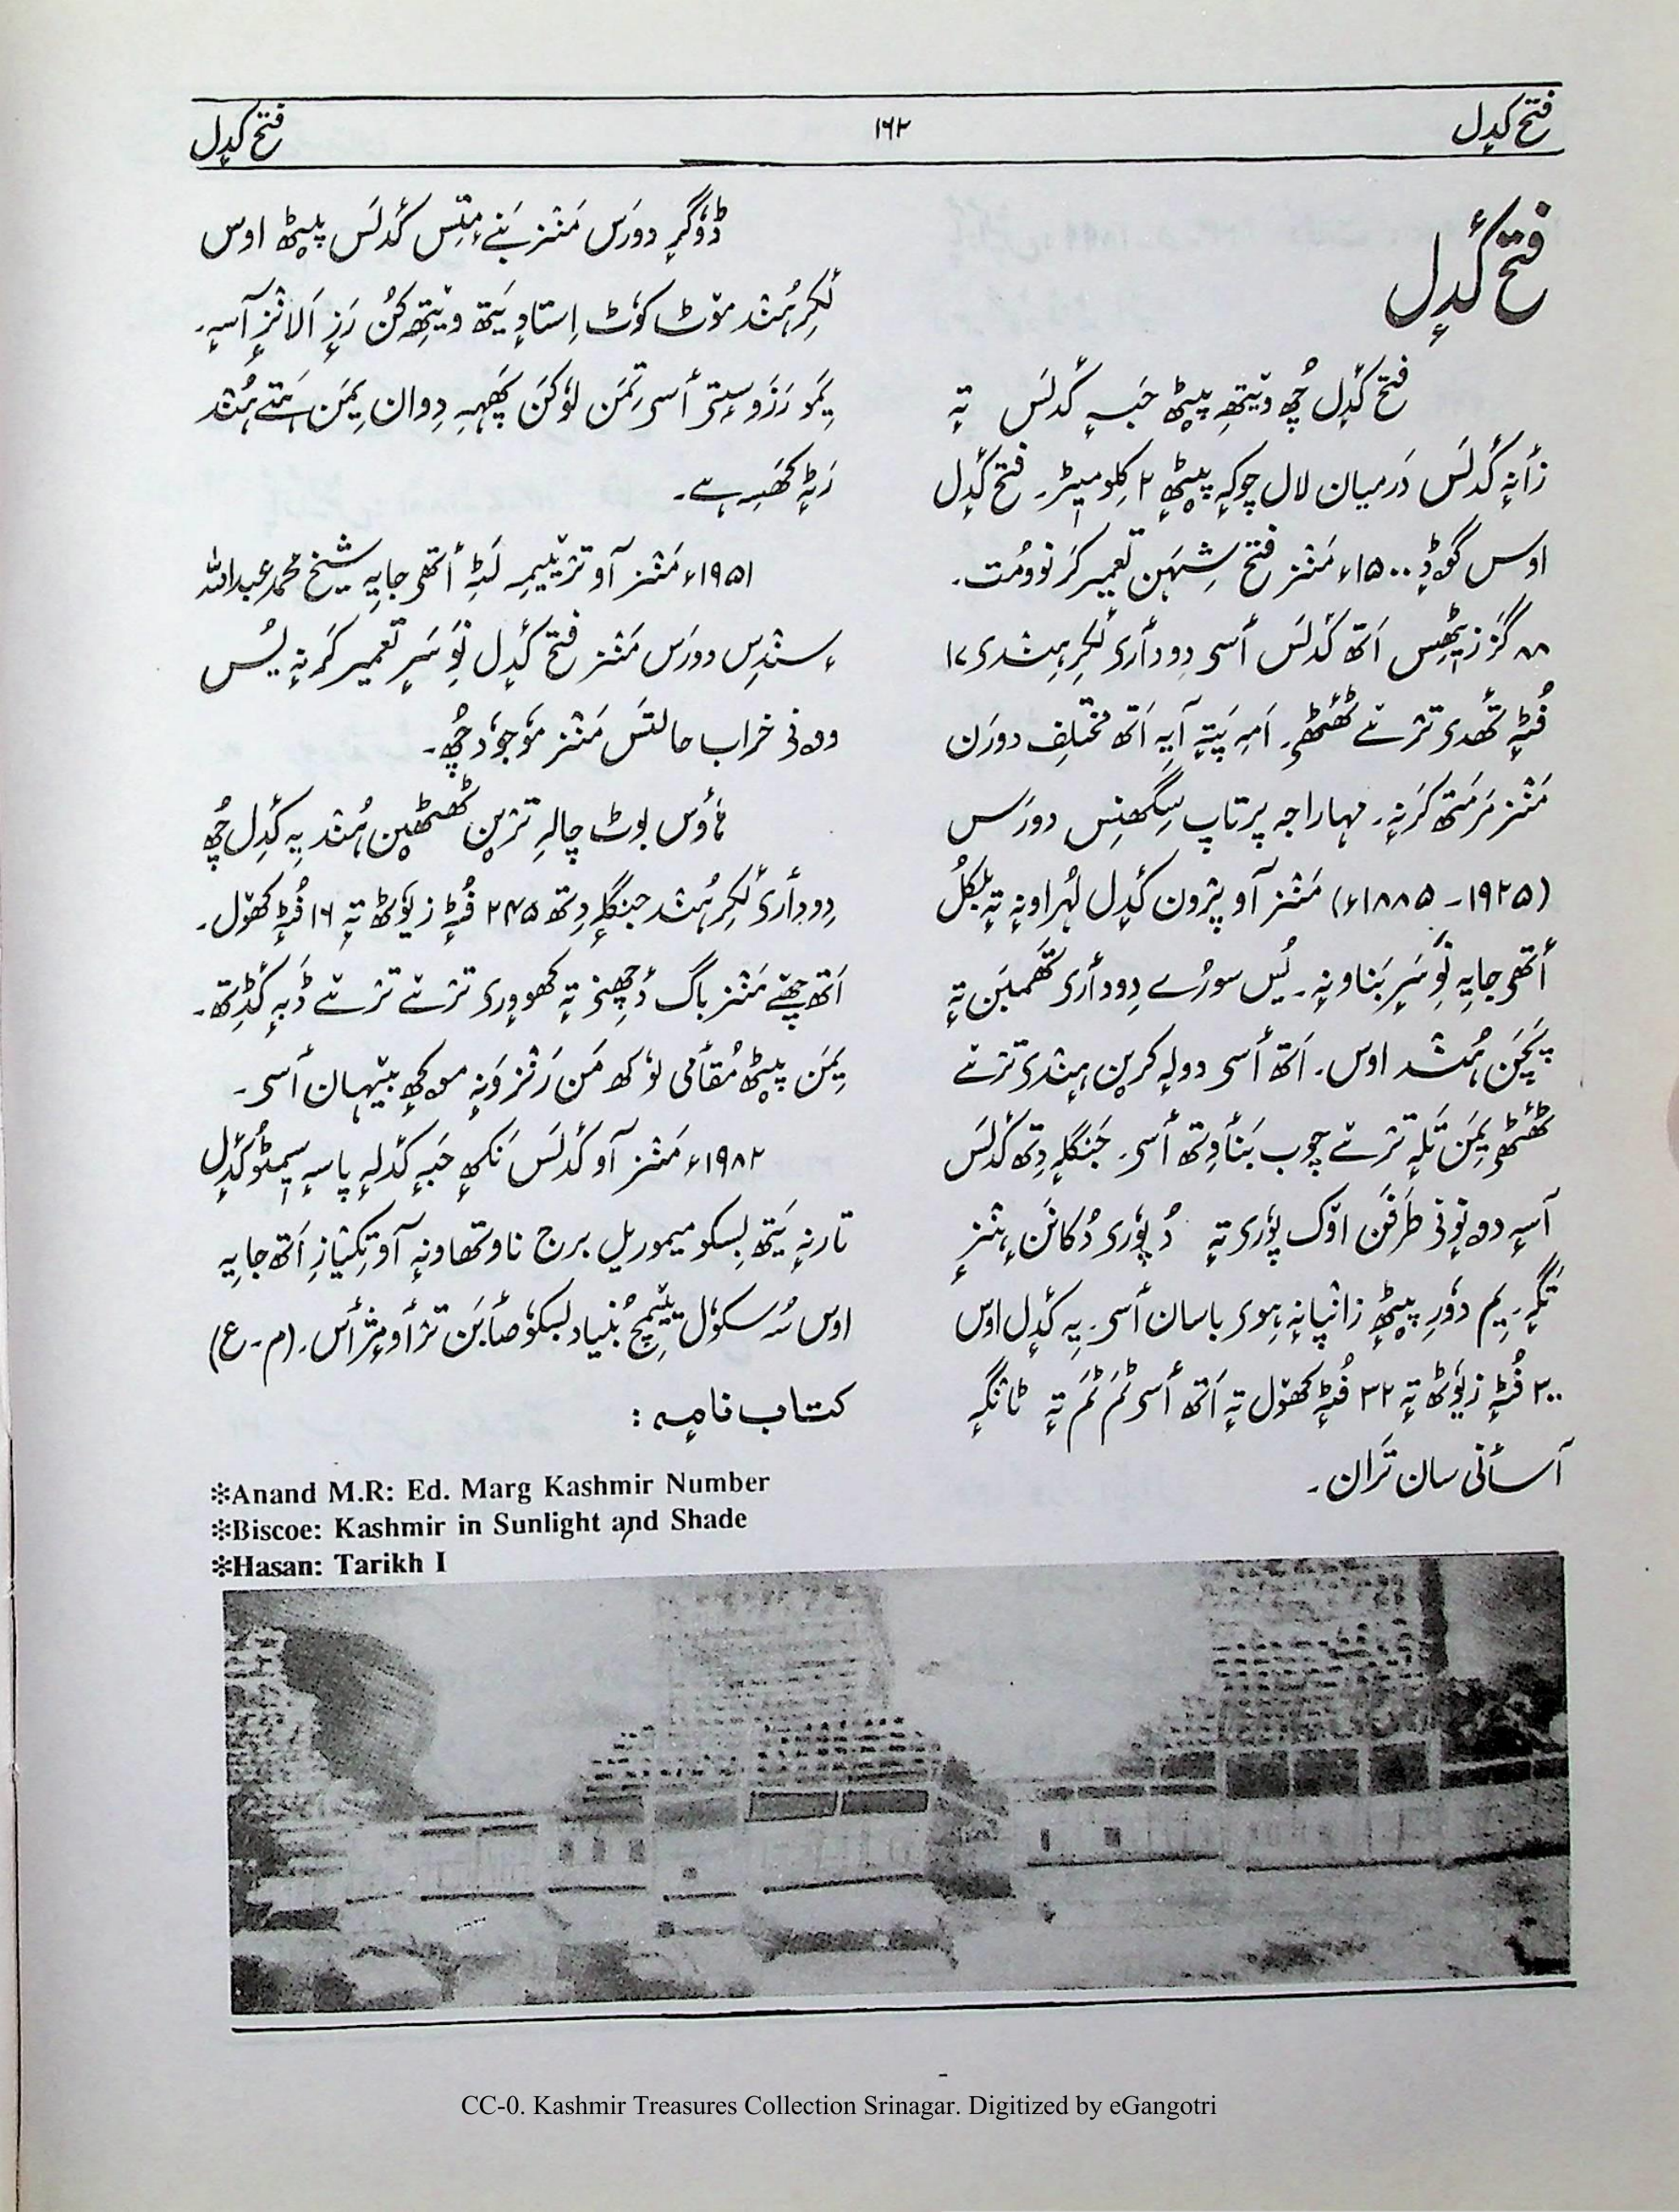 فتح کدٕل
۱۶۲
فتح کدٕل
فتح کٔدٕل
فتح کٔدٕل چُھ ویتھہِ پیٹھ حَبہٕ کَدلَس تہٕ
زٲنہٕ کَدلَس دَرمیان لال چوکہٕ پیٹھٕ ۲ کِلومیٖٹر۔ فتح کٔدٕل
اوس گوڈٕ ۱۵۰۰ء مَنٛز فتح شِہَن تعمیر کَرنوومُت۔
۸۸ گَز زیٹھِس اَتھ کَدلَس أسۍ دِودٲرۍ لُکرِ ہِنٛدۍ ۱۷
فُٹہٕ تھٔدۍ ترٛےٚ ٹھٔٹھۍ۔ اَمہِ پَتہٕ آیہِ اَتھ مختلِف دورَن
مَنٛز مَرمَتھ کَرنہٕ۔ مہاراجہ پرتاپ سِنگھنِس دورَس
(۱۹۲۵ ۔ ۱۸۸۵ء) مَنٛز آو پرٛون کٔدٕل لُہراونہٕ تہٕ بلکُل
أتھۍ جایہِ نٔوِ سَرٕ بَناونہٕ۔ یُس سورُے دِودٲرۍ تھَمبَن تہٕ
پَچَن ہُنٛد اوس۔ اَتھ أسۍ دولہٕ کرٕین ہِنٛدۍ ترٛےٚ
ٹھٔٹھۍ یِمَن تَلہٕ ترٛےٚ چوب بَنٲوِتھ أسۍ۔ جَنگلہٕ دِتھ کَدلَس
آسہٕ دۄنوٕنۍ طَرفَن اوٚک پوٗرۍ تہٕ دُ پوٗرۍ دُکانَن ہٕنٛزٕ
تَگہٕ۔ یِم دوٗرِ پیٹھٕ زانٛپانہٕ ہِوۍ باسان أسۍ۔ یِہ کٔدٕل اوس
۲۰۰ فُٹہٕ زیوٗٹھ تہٕ ۲۲ فُٹہٕ کھوٚل تہٕ اَتھ أسۍ ٹَم ٹَم تہٕ ٹانگہٕ
آسٲنی سان تَران۔
ڈوگرٕ دورَس مَنٛز بَنےٚمٕتِس کَدلَس پیٹھ اوس
لُکرِ ہُنٛد موٚٹ کوٗٹ اِستادٕ یَتھ ویتھہِ کُن رَزٕ اَلانٛزٕ آسہٕ۔
یِمَو رَزَو سٕتۍ أسۍ تِمَن لوٗکَن پَھہہٕ دِوان یِمَن ہَتےٚ ہُنٛد
رَٹہٕ کَھسہِ ہے۔
۱۹۵۱ء مَنٛز آو ترٛییمہِ لَٹہِ أتھۍ جایہِ شیخ محمد عبداللہ
سٕنٛدِس دورَس مَنٛز فتح کٔدٕل نٔوِ سَرٕ تعمیر کَرنہٕ یُس
وۄنۍ خراب حالتَس مَنٛز موٗجوٗد چُھ۔
ہاوٗس بوٹ چالہِ ترٛین ٹھٹھین ہُنٛد یِہ کٔدٕل چُھ
دِودٲرۍ لُکرِ ہُنٛد جنگلہٕ دِتھ ۲۴۵ فُٹہٕ زیوٗٹھ تہٕ ۱۶ فُٹہٕ کھوٚل۔
اَتھ چھےٚ مَنٛز باگ دٔچھِنۍ تہٕ کھووٕرۍ ترٛےٚ ترٛےٚ ڈَبہٕ کٔڈِتھ۔
یِمَن پیٹھ مُقٲمی لوٗکھ مَن رَنٛزٕ وَنہٕ موکھٕ بیٖہان أسۍ۔
۱۹۸۲ء مَنٛز آو کَدلَس نَکھٕ حَبہٕ کَدلہٕ پاسہٕ سیمنٹوٗ کٔدٕل
تارنہٕ یَتھ بِسکو میموریل برج ناو تھاونہٕ آو تِکیازِ اَتھ جایہِ
اوس سُہ سکوٗل ییٚمٕچ بُنیاد بسکوٗ صٲبَن ترٛٲومٕژ ٲس۔ (م۔ع)
کتاب نامہٕ :
*Anand M.R: Ed. Marg Kashmir Number
*Biscoe: Kashmir in Sunlight and Shade
*Hasan: Tarikh I
CC-0. Kashmir Treasures Collection Srinagar. Digitized by eGangotri